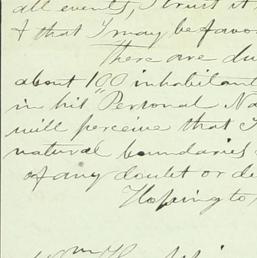 all events, I trust it
& that I may be favo
There are du
about 100 inhabitant
in his "Personal Na
will perceive that I
natural boundaries
of any doubt or de
Hoping to,
Wm H.